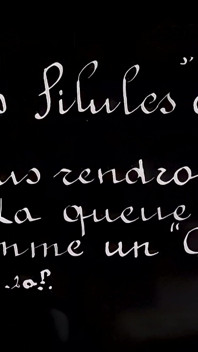 s Pilules "
us rendro
la queue
mme un "C